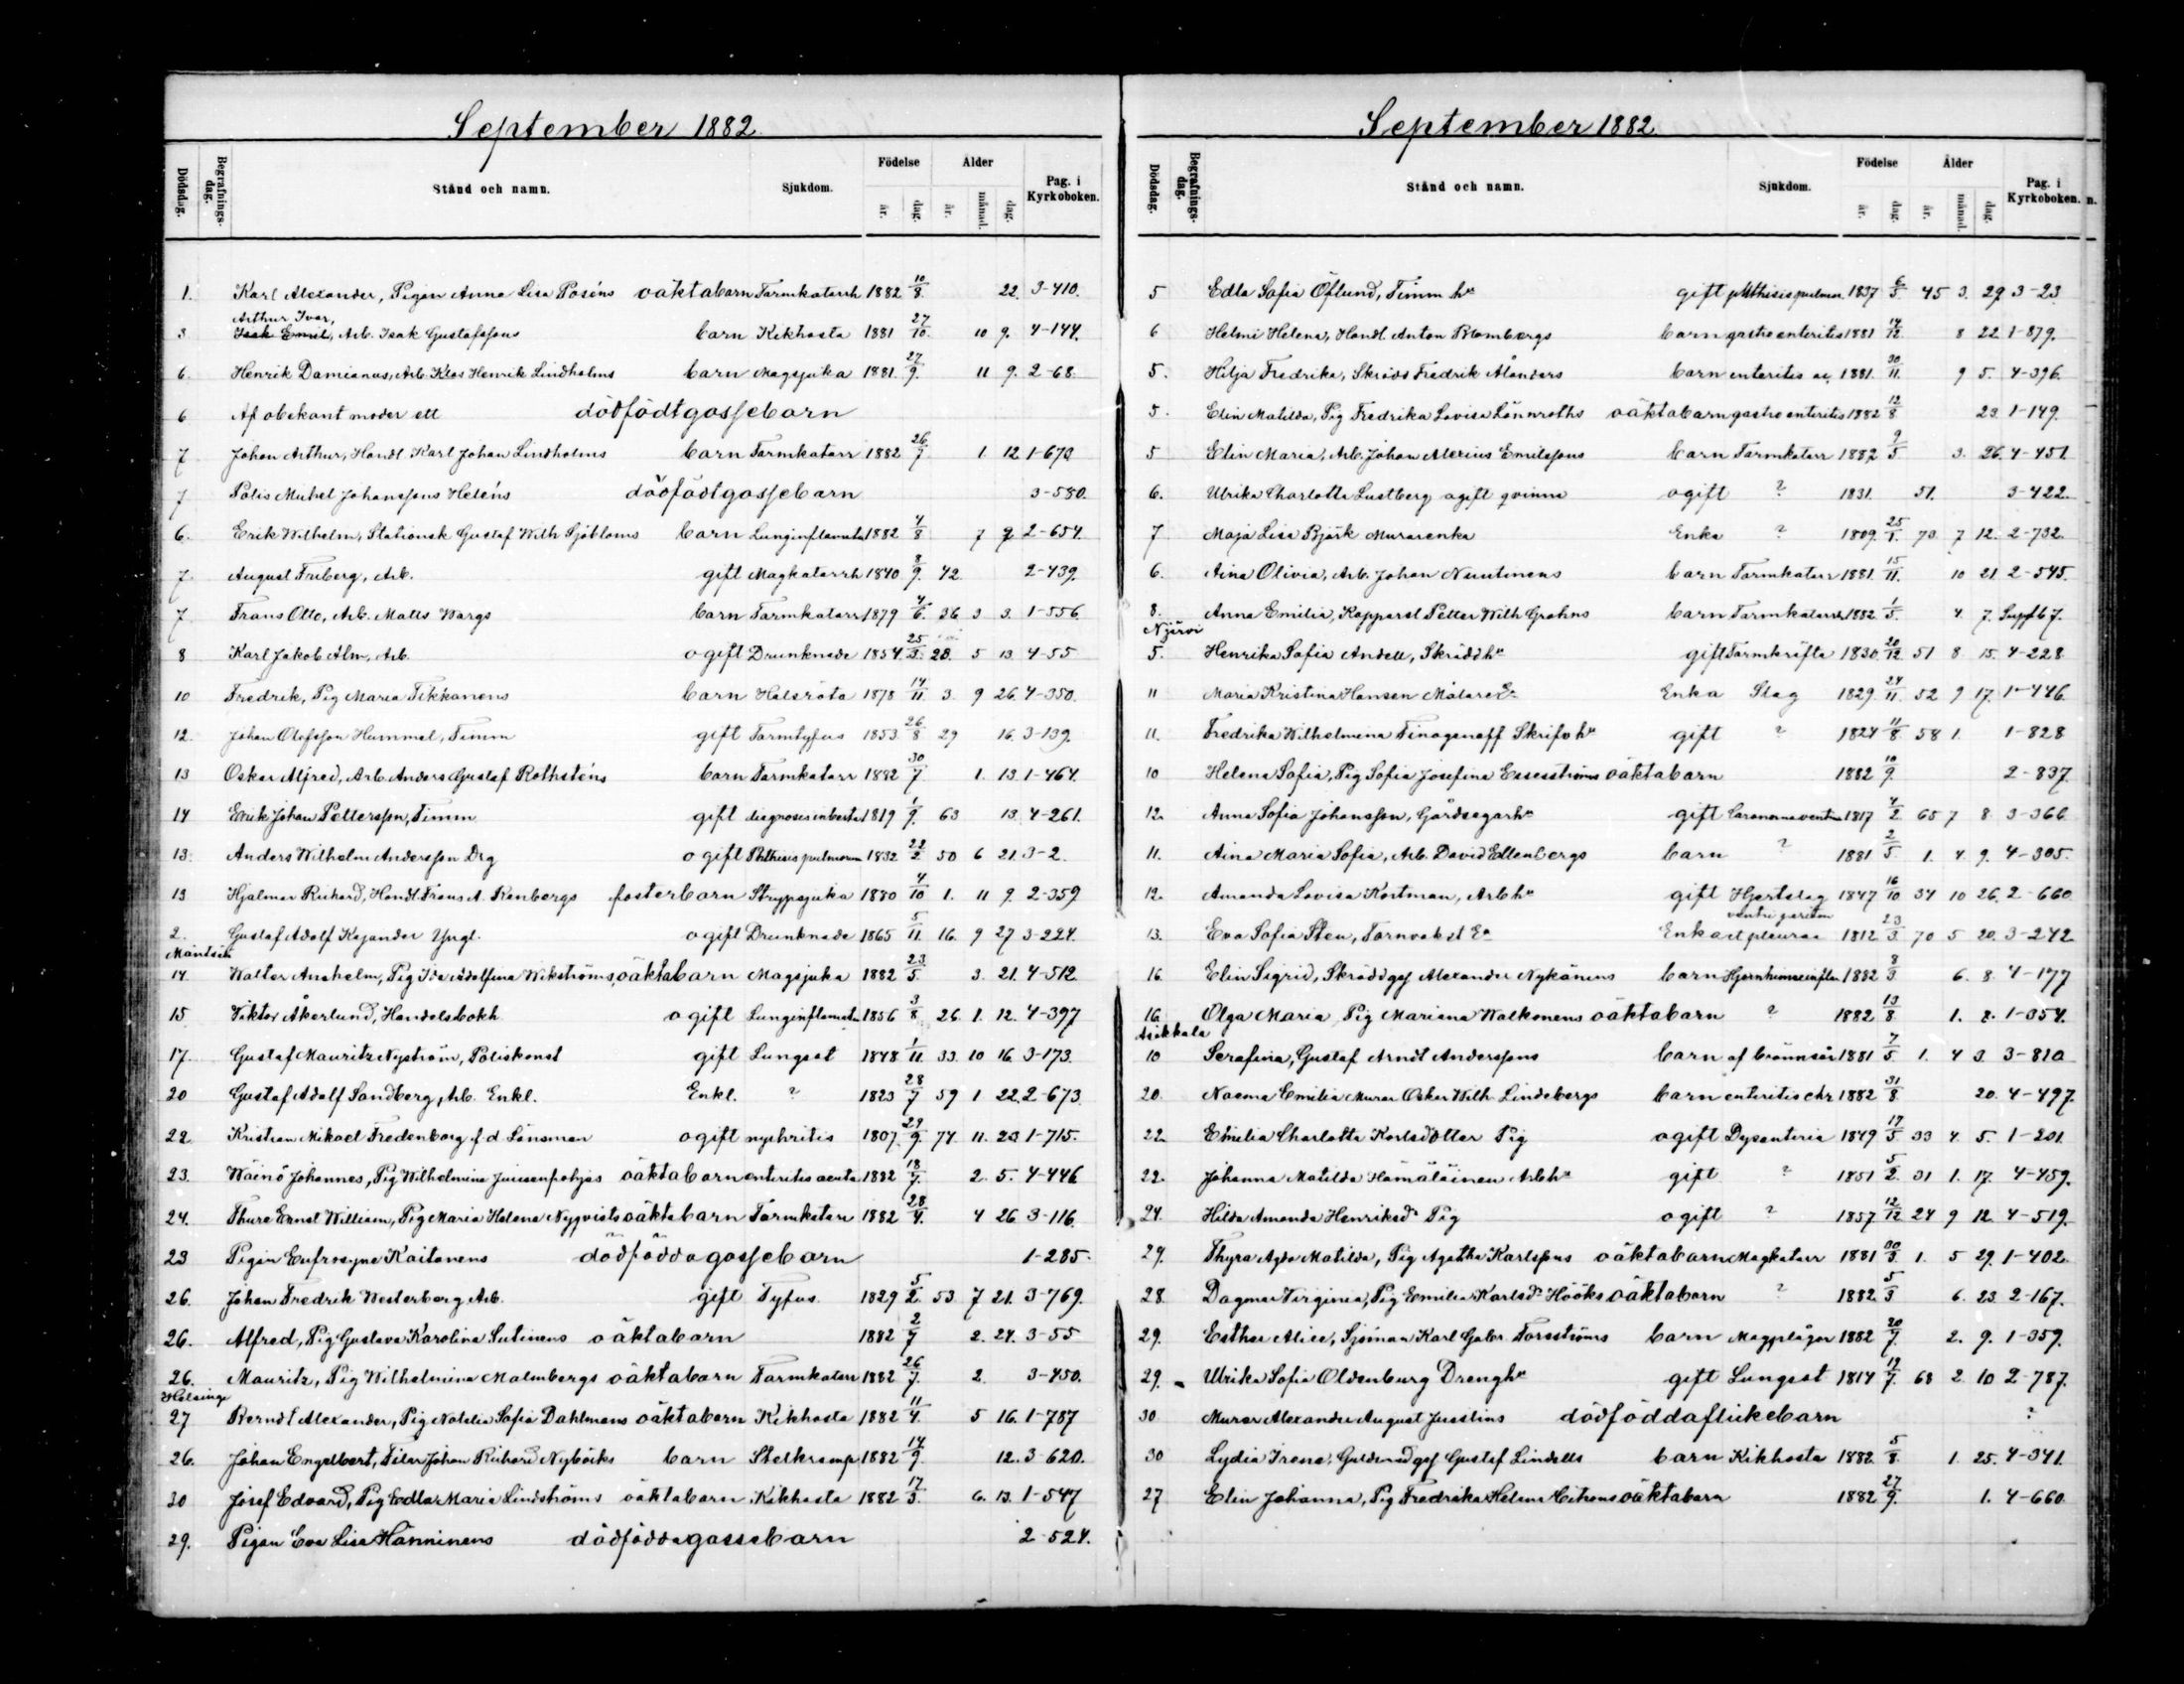 September 1882
Dödsdag. Begrafnings-dag. Stånd och namn. Sjukdom. Födelse år. dag. Ålder år. månad. dag. Pag. i Kyrkoboken.
1. Karl Alexander, Pigan Anna Lisa Poséns oäktabarn Tarmkatarrh 1882 10/8. 22. 3-410.
Arthur Ivar,
3 Isak Emil, Arb. Isak Gustafssons barn Kikhosta 1881 27/10. 10 9. 4-144.
6. Henrik Damianus, Arb. Klas Henrik Lindholms barn Magsjuka 1881. 27/9. 11 9. 2-68.
6 Af obekant moder ett dödfödtgossebarn
7 Johan Arthur, Handl Karl Johan Lindholms barn Tarmkatarr 1882 26/7 1. 12 1-673
7 Polis Mickel Johanssons Heléns dödfödtgossebarn 3-580.
6. Erik Wilhelm, Stationsk Gustaf Wilh Sjöbloms barn Lunginflamatn 1882 4/8 7 9 2-654.
7. August Friberg, Arb. gift Magkatarrh 1840 8/9. 42. 2-439.
7 Frans Otto, Arb. Matts Wargs barn Tarmkatarr 1879 4/6. 36 3 3. 1-556.
8 Karl Jakob Alm, Arb. ogift Drunknade 1854. 25/3. 28. 5 13. 4-55
10 Fredrik, Pig Maria Tikkanens barn Halsröta 1878 14/11. 3. 9 26. 4-350.
12. Johan Olofsson Hummel, Timm gift Tarmtyfus 1853 26/8 29 16. 3-139.
13 Oskar Alfred, Arb. Anders Gustaf Rothsténs barn Tarmkatarr 1882 30/7. 1. 13. 1-464.
14 Erik Johan Pettersson, Timm gift diagnosis incerta 1819 1/9. 63 13. 4-261.
13. Anders Wilhelm Andersson Drg ogift Phthisis pulmorum 1832 22/2. 50 6 21. 3-2.
13 Hjalmar Rickard, Handl. Frans A. Renbergs fosterbarn Strypsjuka 1880 4/10 1. 11 9. 2-359
2. Gustaf Adolf Kajander Yngl. ogift Drunknade 1865 5/11. 16. 9 27 3-224.
Mäntsälä
14. Walter Anshelm, Pig Ida Adolfina Wikströms, oäktabarn Magsjuka 1882 23/5. 3. 21. 4-512.
15 Viktor Åkerlund, Handelsbokh ogift Lunginflamatn 1856 3/8 26. 1. 12. 4-397
17. Gustaf Mauritz Nyström, Poliskonst gift Lungsot 1848 1/11. 33. 10 16. 3-173.
20 Gustaf Adolf Sandberg, Arb. Enkl. Enkl. ? 1823 28/7 59 1 22. 2-673.
22. Kristian Mikael Fredenborg f.d. Länsman ogift nephritis 1807 29/9. 74. 11. 23. 1-715.
23. Wäinö Johannes, Pig Wilhelmina Juusenpohjas oäktabarn enteritis acuta 1882 18/7. 2. 5. 4-446
24. Thure Ernst William, Pig Maria Helena Nyqvists oäktabarn Tarmkatarr 1882 28/4. 4 26 3-116.
23 Pigan Eufrosyne Kaitanens dödföddagossebarn 1-285.
26. Johan Fredrik Westerberg Arb. gift Tyfus 1829 5/2. 53 7 21. 3-769.
26. Alfred, Pig Gustava Karolina Sutinens oäktabarn 1882 2/7 2. 24. 3-55
26. Mauritz, Pig Wilhelmina Malmbergs oäktabarn Tarmkatarr 1882 26/7. 2. 3-450.
Helsinge
27 Berndt Alexander, Pig Natalia Sofia Dahlmans oäktabarn Kikhosta 1882 11/4. 5 16. 1-787
26. Johan Engelbert, Filar Johan Richard Nybäcks barn Stelkramp 1882 14/9. 12. 3-620.
30 Josef Edvard, Pig Edla Maria Lindströms oäktabarn Kikhosta 1882 17/3. 6. 13. 1-547
29. Pigan Eva Lisa Hänninens dödföddagossebarn 2-524.
September 1882
Dödsdag. Begrafnings-dag. Stånd och namn. Sjukdom. Födelse år. dag. Ålder år. månad. dag. Pag. i Kyrkoboken. n.
5 Edla Sofia Öflund, Timm.hu gift phthisis pulmon. 1837 6/5 45 3. 29 3-23
6 Helmi Helena, Handl Anton Blombergs barn gastro enteritis 1881 14/12. 8 22 1-879.
5. Hilja Fredrika, Skrädd Fredrik Ålanders barn enteritis ac. 1881. 30/11. 9 5. 4-396.
5. Elin Matilda, Pig Fredrika Lovisa Lönnroths oäktabarn gastro enteritis 1882 12/8 23. 1-149.
5 Elin Maria, Arb. Johan Alexius Emilssons barn Tarmkatarr 1882 9/5 3. 26. 4-451.
6. Ulrika Charlotta Lustberg ogift qvinna ogift ? 1831. 51. 3-422.
7 Maja Lisa Björk Murarenka Enka ? 1809. 25/1. 73. 7 12. 2-732.
6. Aina Olivia, Arb. Johan Nuutinens barn Tarmkatarr 1881. 15/11. 10 21. 2-545.
8. Anna Emilia, Kopparsl Petter Wilh Grahns barn Tarmkatarrh 1882 1/5. 4. 7.
Njärvi
5. Henrika Sofia Andell, Skräddhu gift Tarmkräfta 1830. 20/12. 51 8 15. 4-228
11 Maria Kristina Hansen Målare Ea Enka Slag 1829. 24/11. 52 9 17. 1-446.
11. Fredrika Wilhelmina Finogenoff Skrifvhu gift ? 1824 11/8 58 1. 1-828
10 Helena Sofia, Pig Sofia Josefina Essesströms oäktabarn 1882 10/9. 2-837
12. Anna Sofia Johansson, Gårdsegarhu gift 1817 4/2. 65 7 8 3-366
11. Aina Maria Sofia, Arb. David Ellenbergs barn ? 1881 2/5. 1. 4. 9. 4-305.
12. Amanda Lovisa Kortman, Arbhu gift Hjertslag 1847 16/10 34 10 26. 2-660
13. Eva Sofia Sten, Enka et pleurae 1812 23/3. 70 5 20. 3-242
16. Elin Sigrid, Skräddges Alexander Nykänens barn Hjernhinneinflam 1882 8/3 6. 8. 4-177
16. Olga Maria, Pig Mariana Walkonens oäktabarn ? 1882 13/8. 1. 2. 1-354.
Asikkala
10 Serafina, Gustaf Arndt Anderssons barn af brännsår 1881 7/5. 1. 4 3. 3-810
20. Naema Emilia Murar Oskar Wilh Lindebergs barn enteritis chr 1882 31/8. 20. 4-497.
22. Emilia Charlotta Karlsdotter Pig ogift Dysenteria 1849 17/5 33 4. 5. 1-201.
22. Johanna Matilda Hämäläinen Arbhu gift ? 1851 5/2. 31 1. 17. 4-459.
24. Hilda Amanda Henriksdr Pig ogift ? 1857 12/12 24 9 12. 4-519.
29. Thyra Agda Matilda, Pig Agatha Karlssons oäktabarn Magkatarr 1881 30/3. 1. 5 29. 1-402.
28. Dagmar Virginia, Pig Emilia Karlsdr Hööks oäktabarn ? 1882. 5/3 6. 23. 2-167.
29. Esther Alice, Sjöman Karl Gabr. Forsströms barn Magplågor 1882 20/7. 2. 9. 1-359.
29. Ulrika Sofia Oldenburg Drenghu gift Lungsot 1814 19/7. 68 2. 10 2-787.
30 Murar Alexander August Jusslins dödföddaflickebarn ?
30 Lydia Irene, Guldsmedges Gustaf Lindells barn Kikhosta 1882. 5/8. 1. 25. 4-341.
27 Elin Johanna, Pig Fredrika Helena Hitrons oäktabarn 1882 27/9. 1. 4-660.